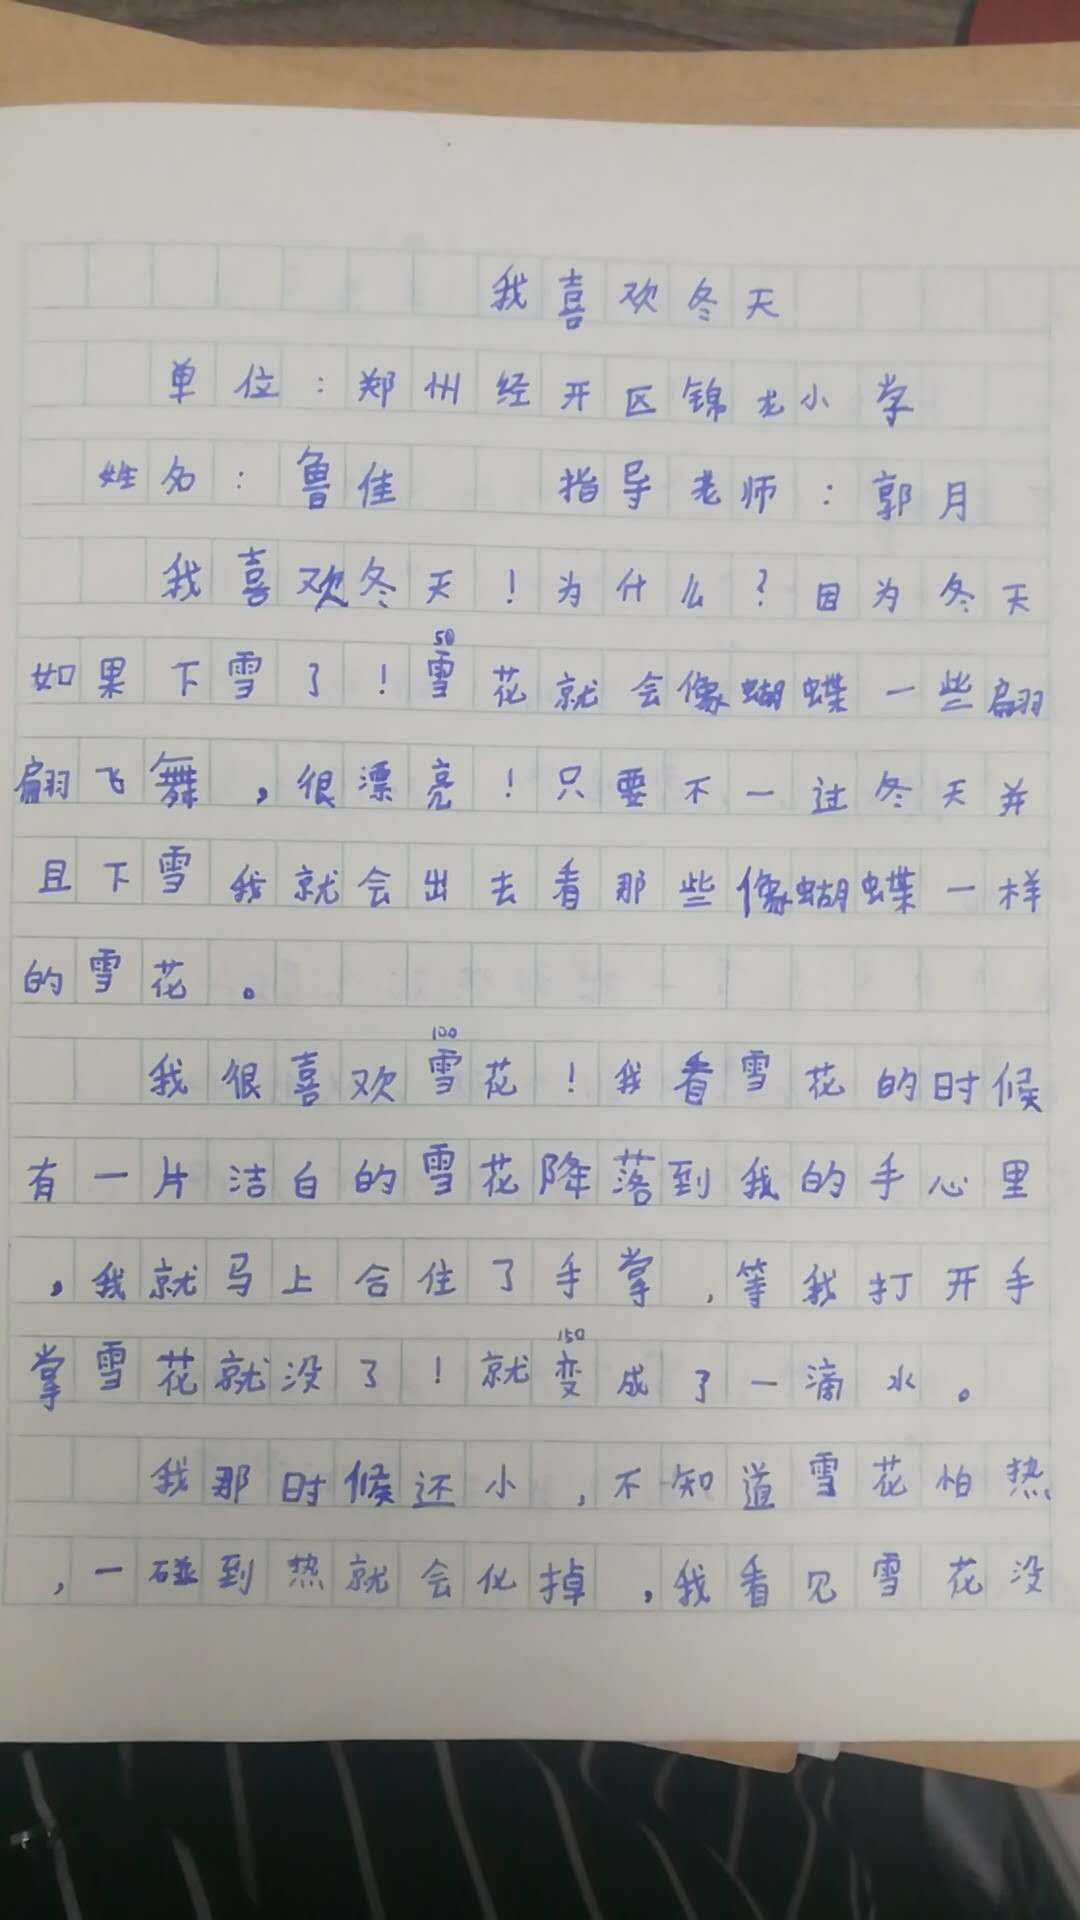 我喜欢冬天
单位:郑州经开区锦龙小学
姓名:鲁佳 指导老师:郭月
我喜欢冬天!为什么?因为冬天
50
如果下雪了!雪花就会像蝴蝶一些翩
翩飞舞,很漂亮!只要不一过冬天并
且下雪我就会出去看那些像蝴蝶一样
的雪花。
100
我很喜欢雪花!我看雪花的时候
有一片洁白的雪花降落到我的手心里
,我就马上合住了手掌,等我打开手
150
掌雪花就没了!就变成了一滴水。
我那时候还小,不知道雪花怕热
,一碰到热就会化掉,我看见雪花没